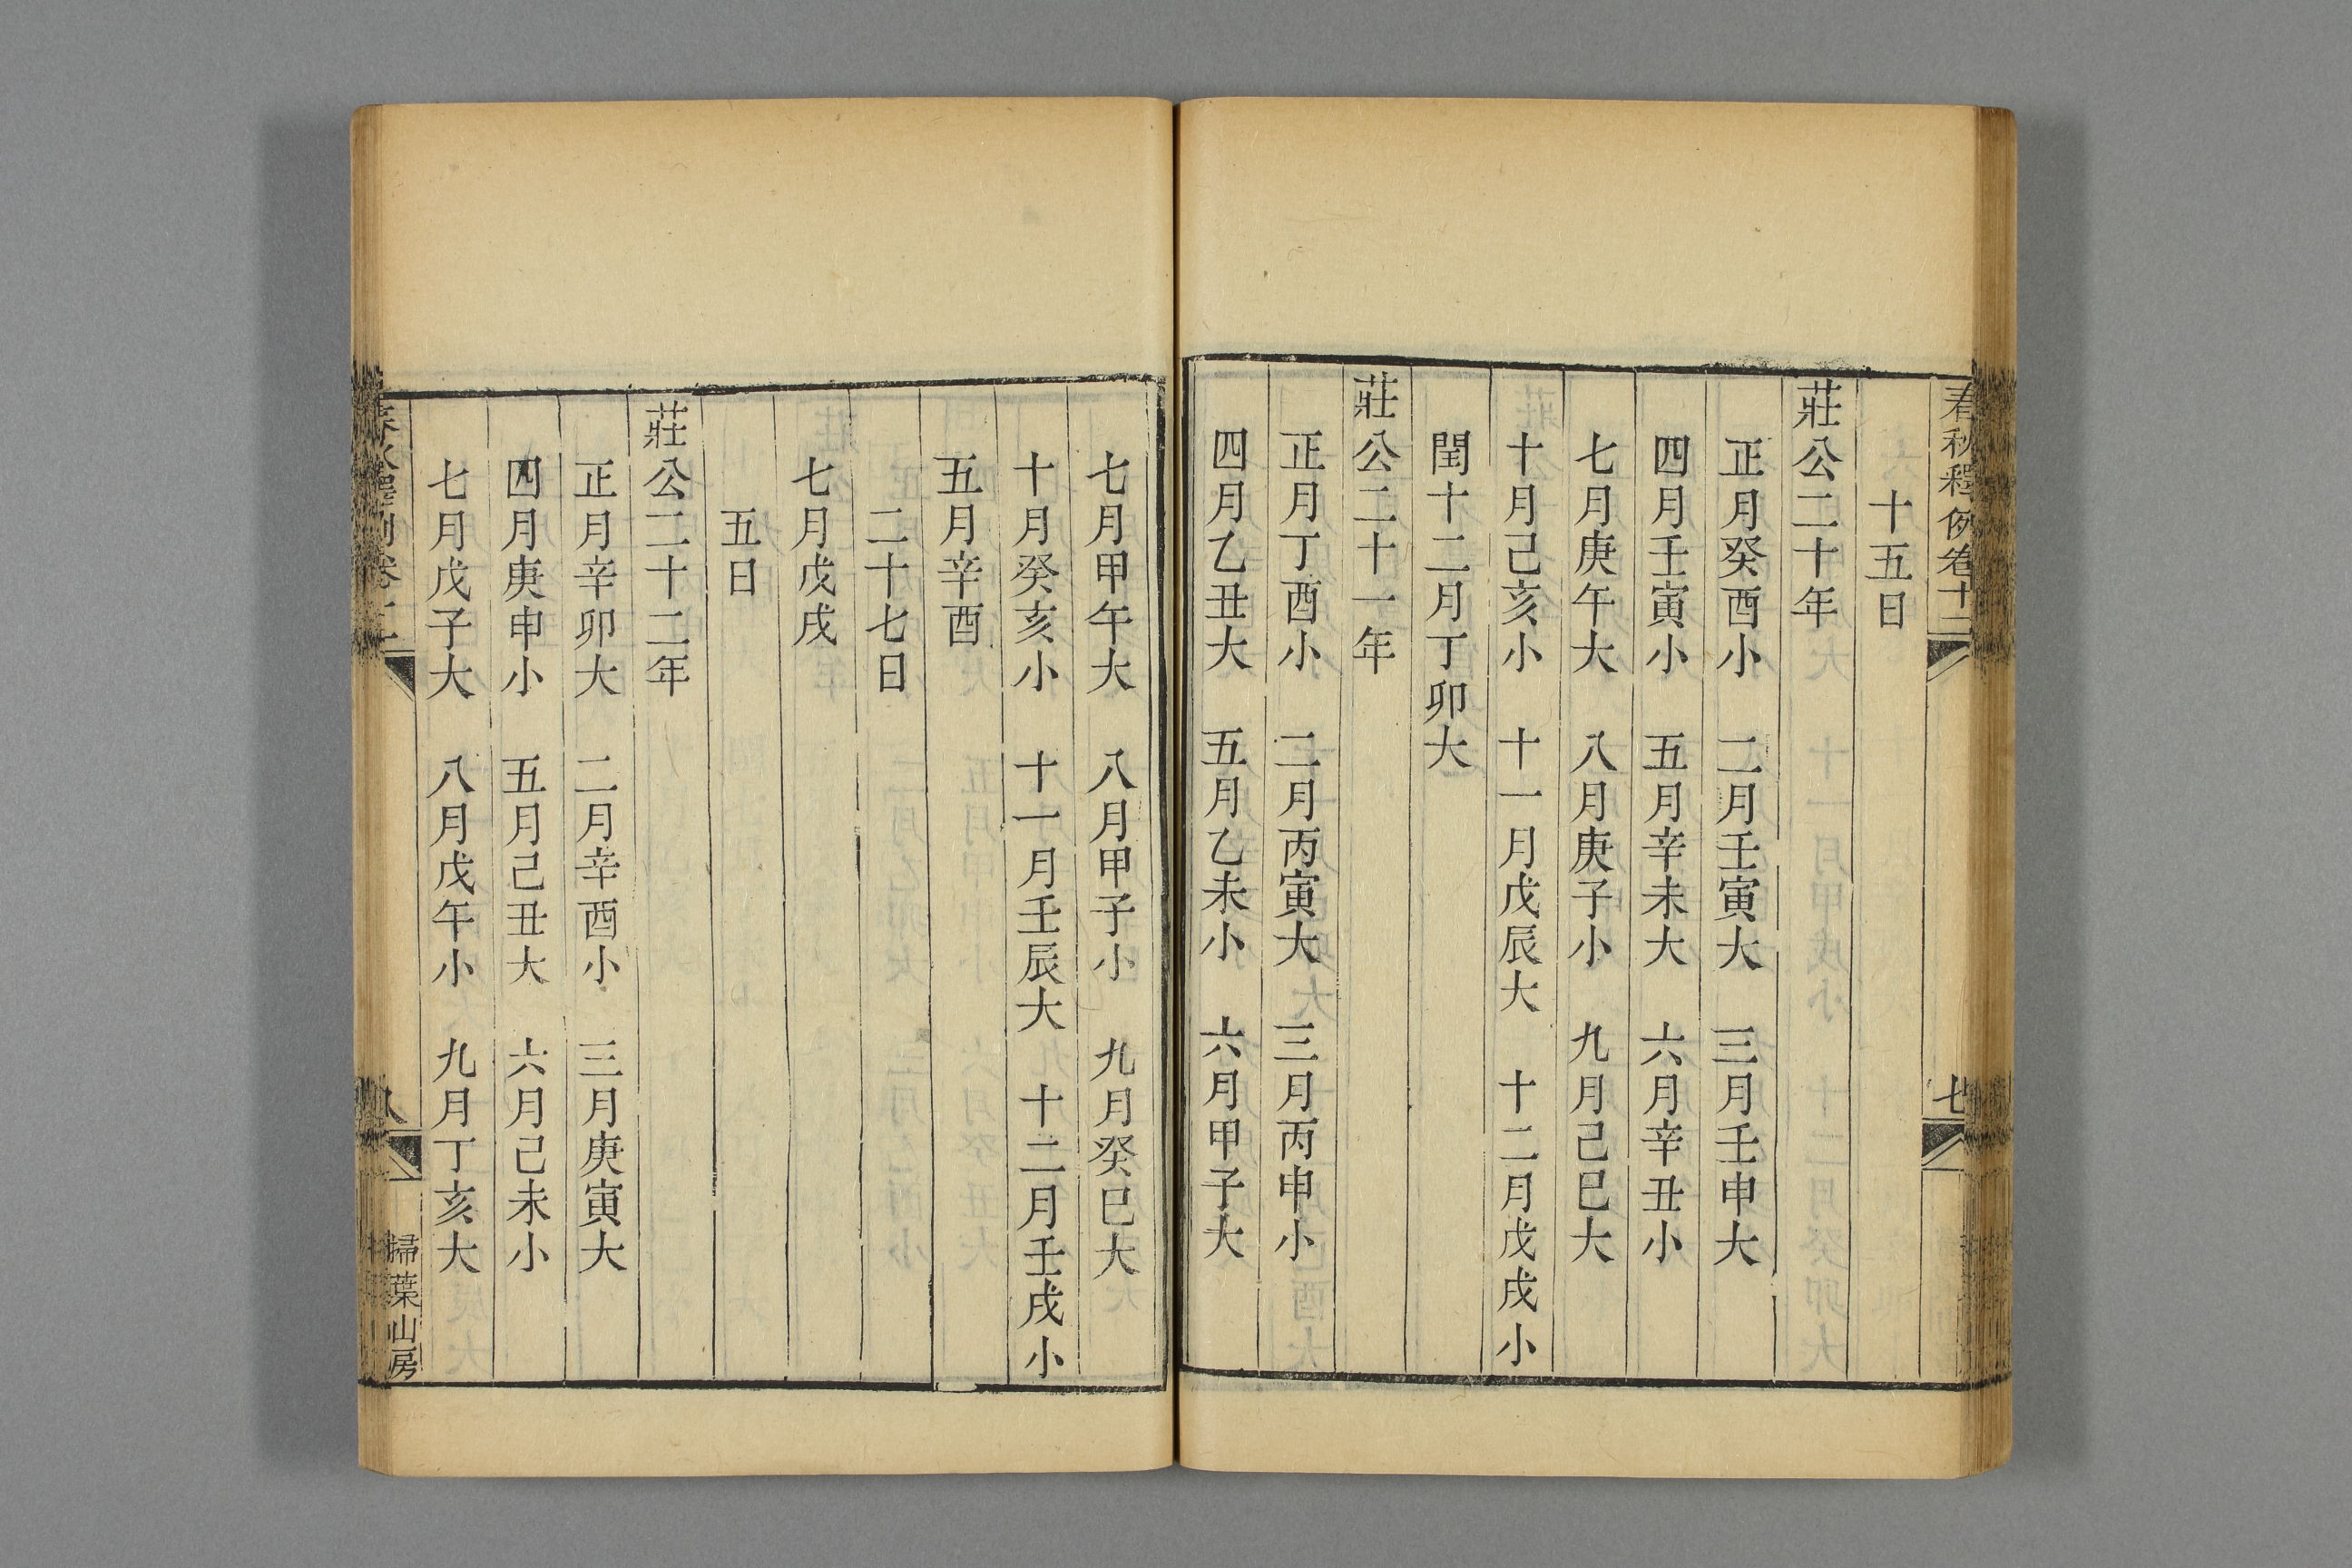 春秋釋例卷十二
七
十五日
莊公二十年
正月癸酉小　二月壬寅大　三月壬申大
四月壬寅小　五月辛未大　六月辛丑小
七月庚午大　八月庚子小　九月己巳大
十月己亥小　十一月戊辰大　十二月戊戌小
閏十二月丁卯大
莊公二十一年
正月丁酉小　二月丙寅大　三月丙申小
四月乙丑大　五月乙未小　六月甲子大
七月甲午大　八月甲子小　九月癸巳大
十月癸亥小　十一月壬辰大　十二月壬戌小
五月辛酉
二十七日
七月戊戌
五日
莊公二十二年
正月辛卯大　二月辛酉小　三月庚寅大
四月庚申小　五月己丑大　六月己未小
七月戊子大　八月戊午小　九月丁亥大
春秋釋例卷十二
八
掃葉山房